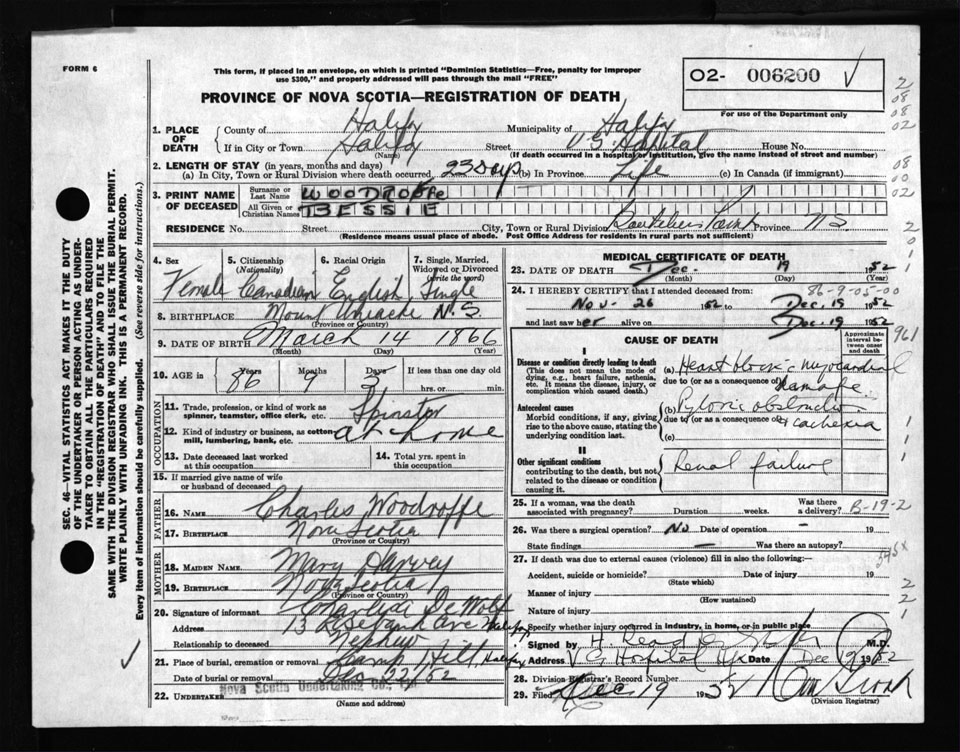 FORM 6
This form, if placed in an envelope, on which is printed "Dominion Statistics—Free, penalty for improper
use $300," and properly addressed will pass through the mail "FREE"
O2- 006200
For use of the Department only
PROVINCE OF NOVA SCOTIA—REGISTRATION OF DEATH
1. PLACE OF DEATH
County of Halifax Municipality of Halifax
If in City or Town Halifax Street V.G. Hospital House No.
(Name) (If death occurred in a hospital or institution, give the name instead of street and number)
2. LENGTH OF STAY (in years, months and days)
(a) In City, Town or Rural Division where death occurred, 23 days (b) In Province Life (c) In Canada (if immigrant)
3. PRINT NAME OF DECEASED
Surname or Last Name WOODROFFE
All Given or Christian Names BESSIE
RESIDENCE No. Street City, Town or Rural Division Province N.S.
(Residence means usual place of abode. Post Office Address for residents in rural parts not sufficient)
4. Sex Female
5. Citizenship (Nationality) Canadian
6. Racial Origin English
7. Single, Married, Widowed or Divorced (write the word) Single
8. BIRTHPLACE Mount Uniacke N.S.
(Province or Country)
9. DATE OF BIRTH March 14 1866
(Month) (Day) (Year)
10. AGE in 86 Years 9 Months 5 Days If less than one day old
hrs. or min.
OCCUPATION
11. Trade, profession, or kind of work as spinner, teamster, office clerk, etc. Spinster
12. Kind of industry or business, as cotton-mill, lumbering, bank, etc. at home
13. Date deceased last worked at this occupation
14. Total yrs. spent in this occupation
15. If married give name of wife or husband of deceased
FATHER
16. NAME Charles Woodroffe
17. BIRTHPLACE Nova Scotia
(Province or Country)
MOTHER
18. MAIDEN NAME Mary Harvey
19. BIRTHPLACE Nova Scotia
(Province or Country)
20. Signature of informant DeWolf
Address 13 Rosebank Ave Halifax
Relationship to deceased Nephew
21. Place of burial, cremation or removal Camp Hill, Halifax
Date of burial or removal Dec 22/52
22. UNDERTAKER Nova Scotia Undertaking Co.,
(Name and address)
MEDICAL CERTIFICATE OF DEATH
23. DATE OF DEATH Dec. 19 1952
(Month) (Day) (Year)
86-9-05-00
24. I HEREBY CERTIFY that I attended deceased from:
Nov. 26 1952 to Dec. 19 1952
and last saw her alive on Dec. 19 1952
CAUSE OF DEATH
Approximate interval between onset and death
I
Disease or condition directly leading to death
(This does not mean the mode of dying, e.g., heart failure, asthenia, etc. It means the disease, injury, or complication which caused death.)
(a) Heart block c myocardial
due to (or as a consequence of) damage
Antecedent causes
Morbid conditions, if any, giving rise to the above cause, stating the underlying condition last.
(b) Pyloric obstruction
due to (or as a consequence of) + cachexia
(c)
II
Other significant conditions
contributing to the death, but not related to the disease or condition causing it.
Renal failure
961
25. If a woman, was the death associated with pregnancy? Duration weeks. Was there a delivery? B-19-2
26. Was there a surgical operation? No Date of operation — 19
State findings — Was there an autopsy?
27. If death was due to external causes (violence) fill in also the following:—
Accident, suicide or homicide? Date of injury 19
(State which)
Manner of injury
(How sustained)
Nature of injury
Specify whether injury occurred in industry, in home, or in public place
Signed by H. Read M.D.
Address V G Hospital Hfx Date Dec 19 1952
28. Division Registrar's Record Number
29. Filed Dec 19 1952
(Division Registrar)
SEC. 46—VITAL STATISTICS ACT MAKES IT THE DUTY
OF THE UNDERTAKER OR PERSON ACTING AS UNDER-
TAKER TO OBTAIN ALL THE PARTICULARS REQUIRED
IN THE "REGISTRATION OF DEATH" AND TO FILE THE
SAME WITH THE DIVISION REGISTRAR WHO SHALL ISSUE THE BURIAL PERMIT.
WRITE PLAINLY WITH UNFADING INK. THIS IS A PERMANENT RECORD.
Every item of information should be carefully supplied. (See reverse side for instructions.)
2
08
08
02
08
00
02
2
0
1
1
1
1
2
2
1